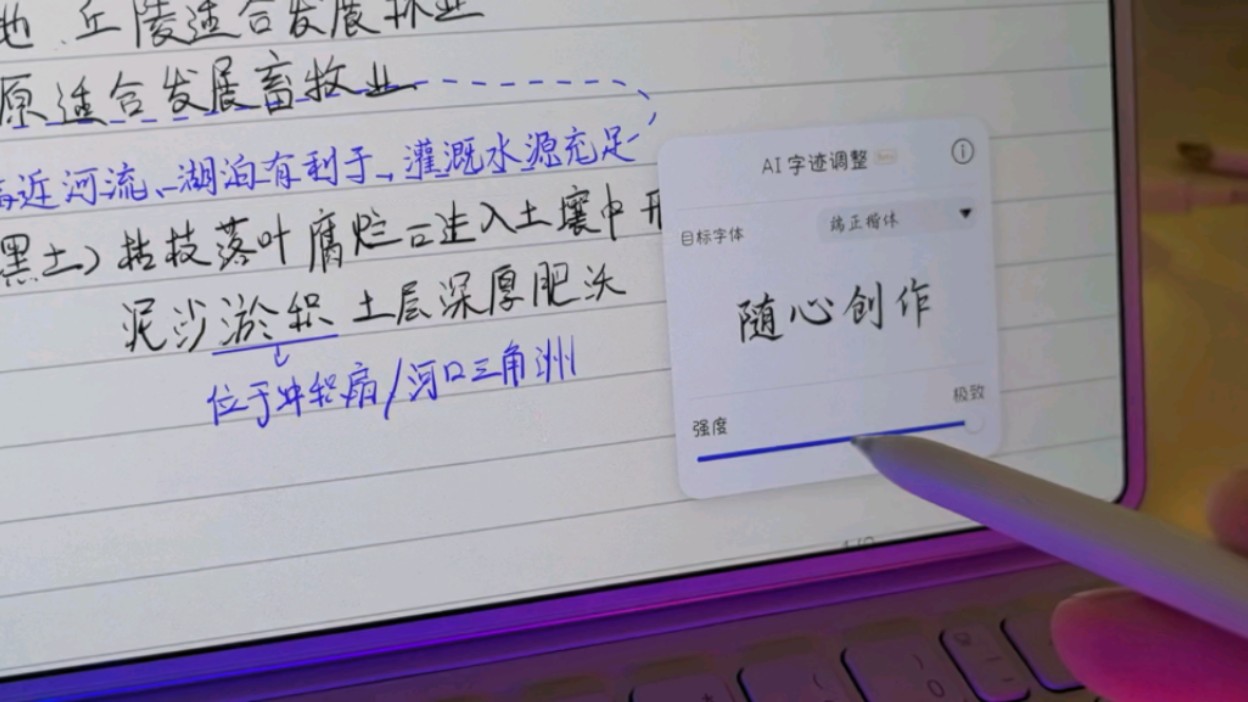 地、丘陵适合发展林业
原适合发展畜牧业
近河流、湖泊有利于,灌溉水源充足
黑土)枯枝落叶腐烂后进入土壤中
泥沙淤积 土层深厚肥沃
位于冲积扇/河口三角洲
AI字迹调整
目标字体 端正楷体
随心创作
极致
强度